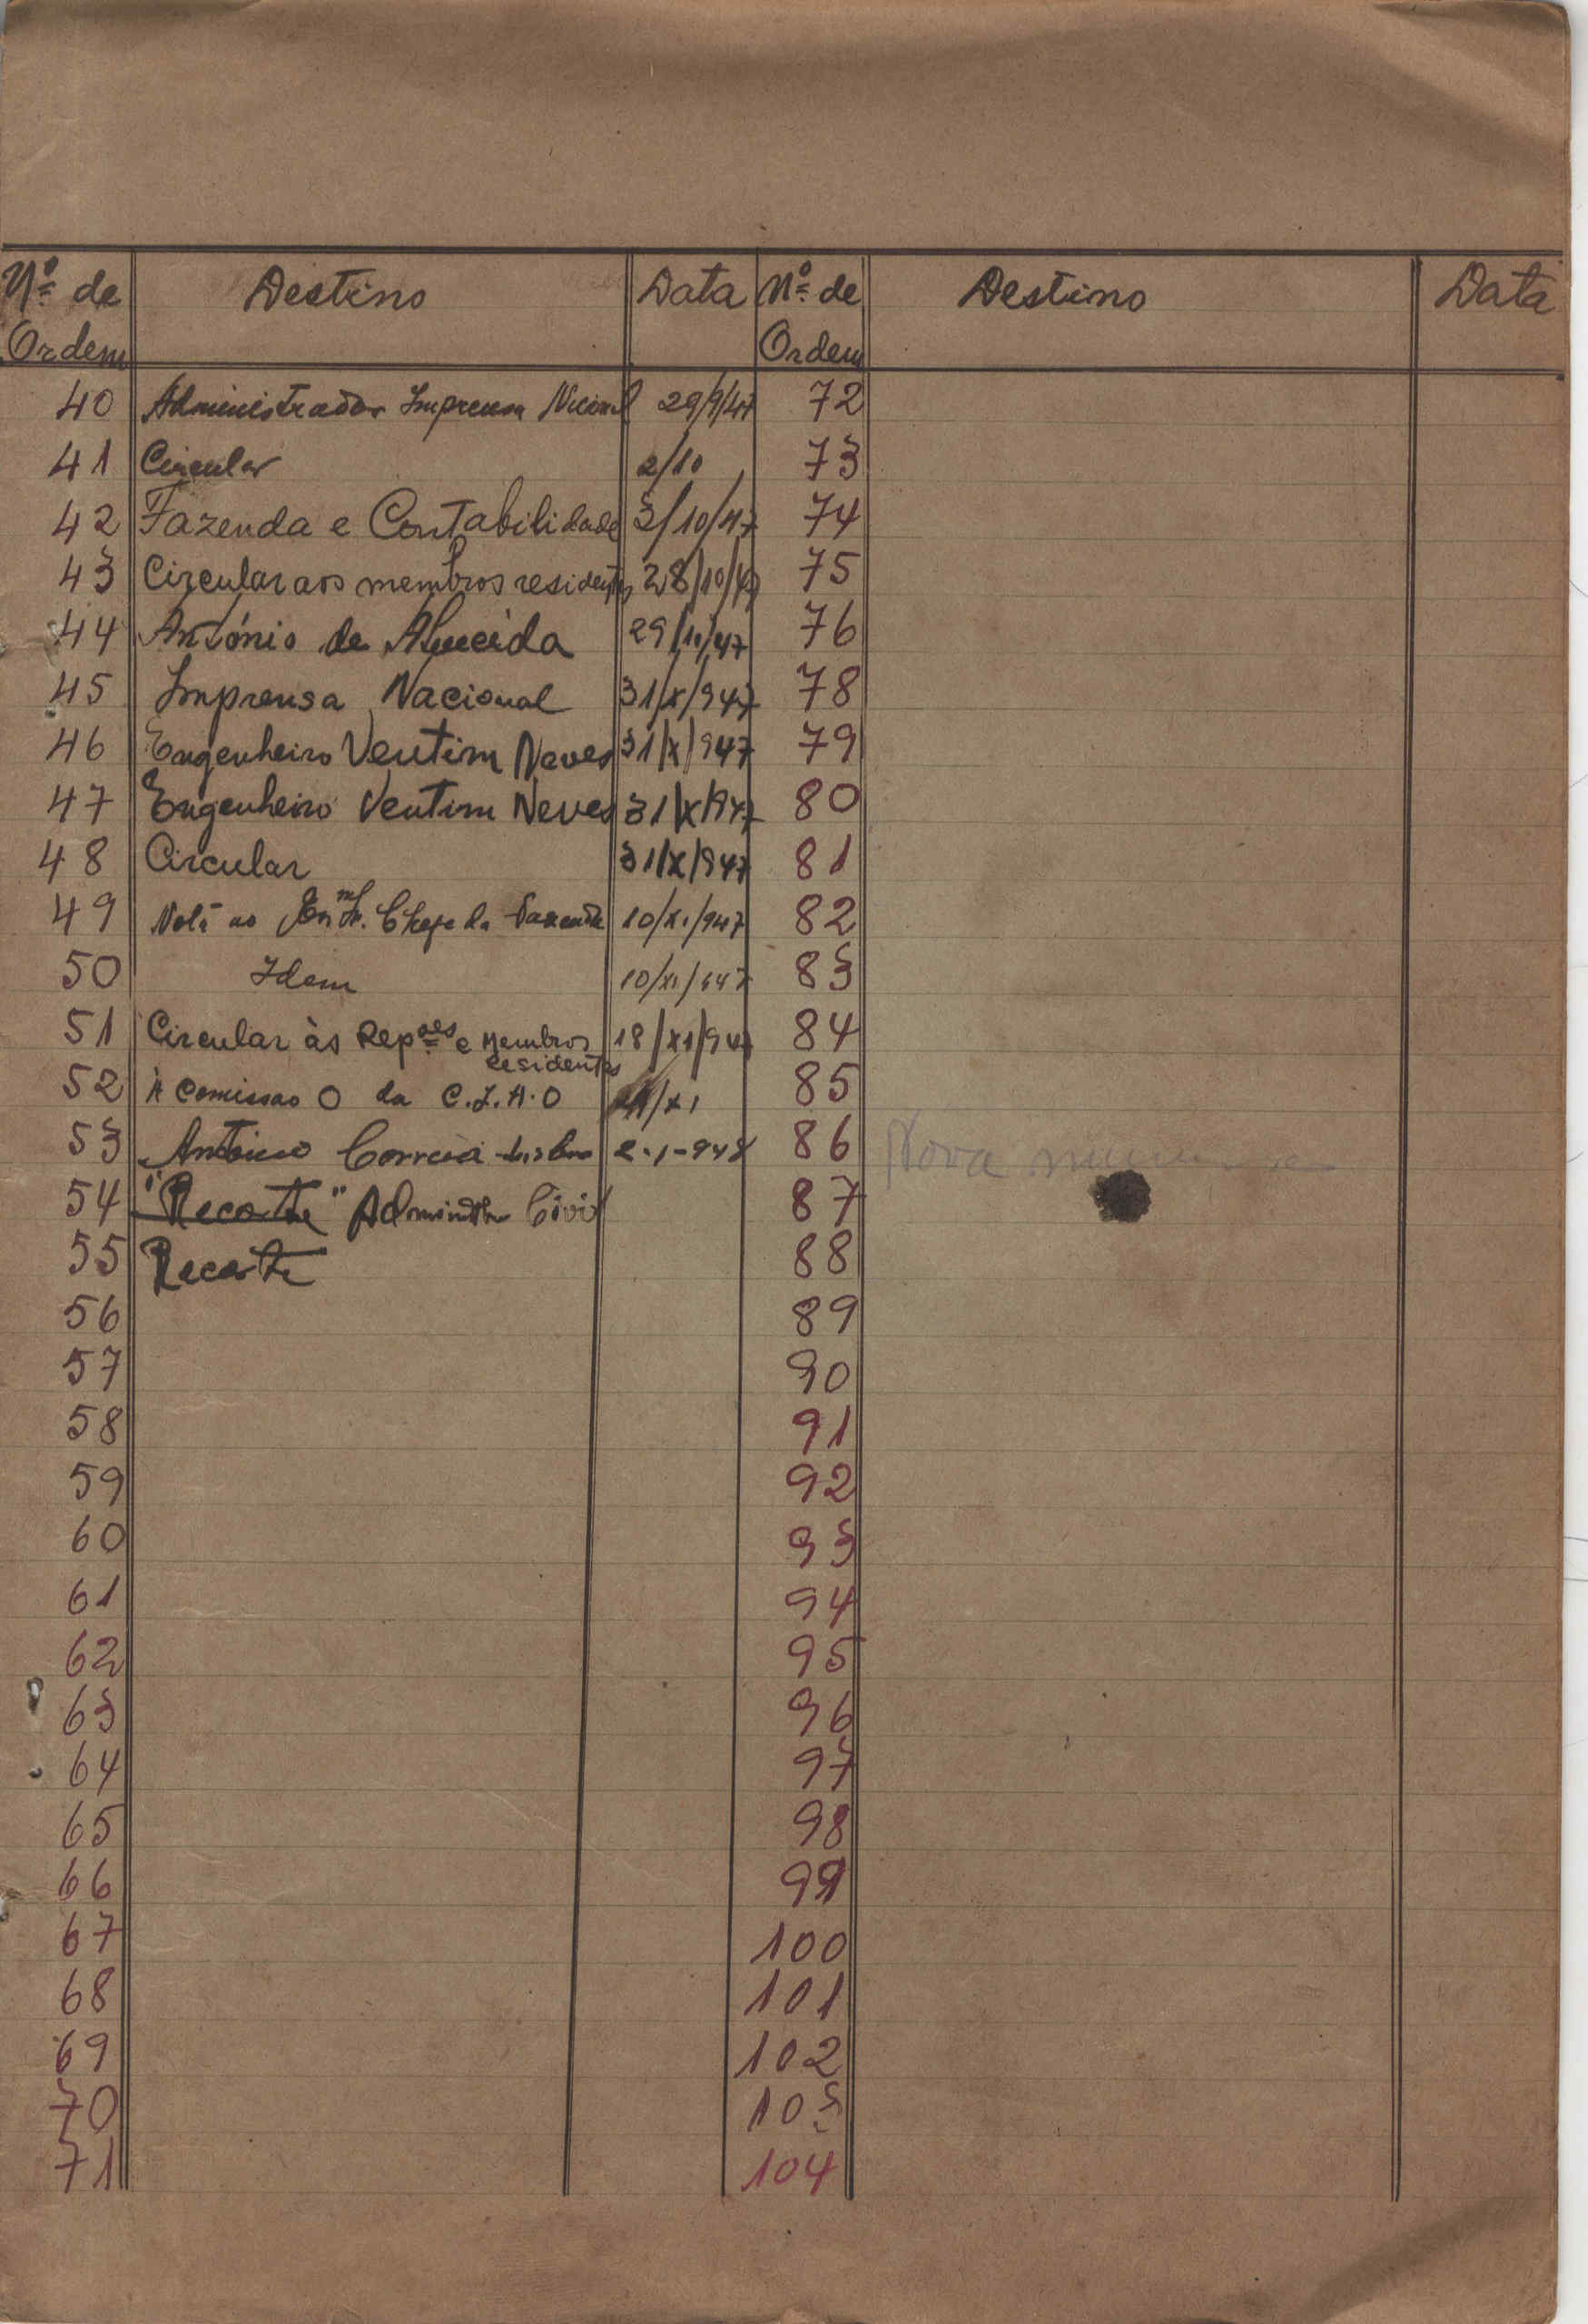 Nº de Ordem Destino Data Nº de Ordem Destino Data
40 Administrador Imprensa Nacional 29/9/47 72
41 Circular 2/10 73
42 Fazenda e Contabilidade 3/10/47 74
43 Circular aos membros residentes 28/10/47 75
44 António de Almeida 29/10/47 76
45 Imprensa Nacional 31/X/947 78
46 Engenheiro Ventim Neves 31/X/947 79
47 Engenheiro Ventim Neves 31/X/947 80
48 Circular 31/X/947 81
49 Nota ao Chefe da Fazenda 10/XI/947 82
50 Idem 10/XI/947 83
51 Circular às Repões e Membros residentes 18/XI/947 84
52 À Comissao O da C.I.A.O /XI 85
53 António Correia Lisboa 2-1-948 86 Nova
54 "Recorte" Civil 87
55 Recorte 88
56 89
57 90
58 91
59 92
60 93
61 94
62 95
63 96
64 97
65 98
66 99
67 100
68 101
69 102
70 103
71 104